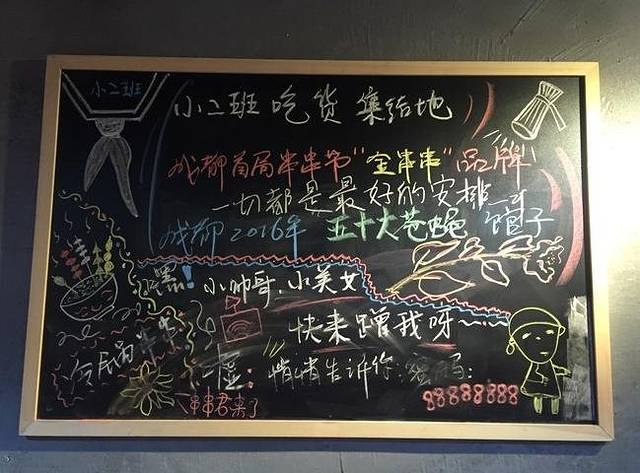 小二班
小二班 吃货 集结地
成都首届串串节"金串串"品牌
一切都是最好的安排
成都2016年 五十大苍蝇馆子
嘿! 小帅哥.小美女
快来蹭我呀~~
嘘: 悄悄告诉你:密码:
88888888
串串君来了